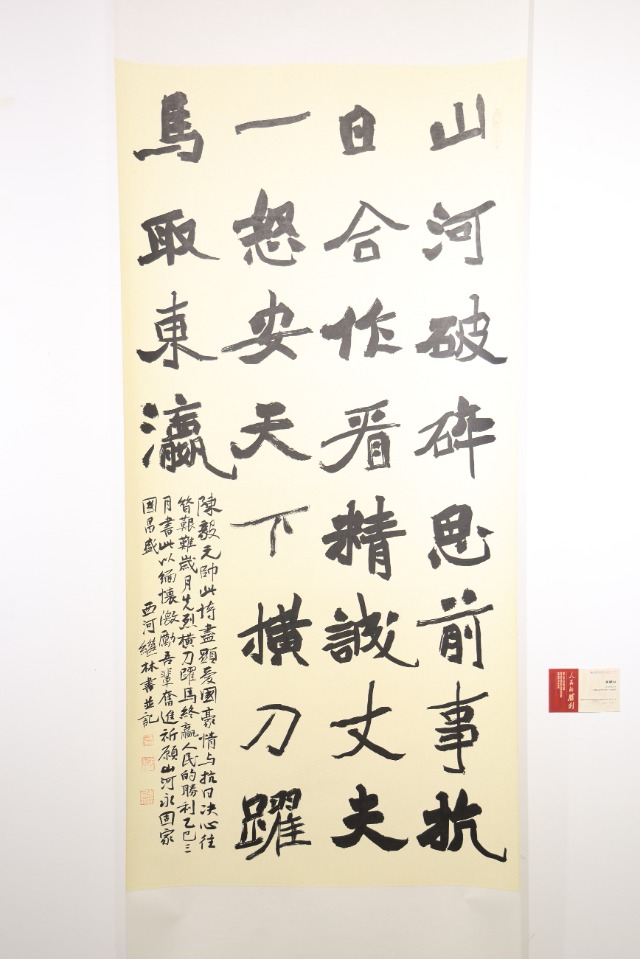 山河破碎思前事抗
日合作看精誠丈夫
一怒安天下橫刀躍
馬取東瀛
陳毅元帥此詩盡顯愛國豪情与抗日決心往
昔艱難歲月先烈橫刀躍馬終贏人民的勝利乙巳三
月書此以緬懷激勵吾輩奮進祈願山河永固家
國昌盛
西河繼林書並記
人民的勝利